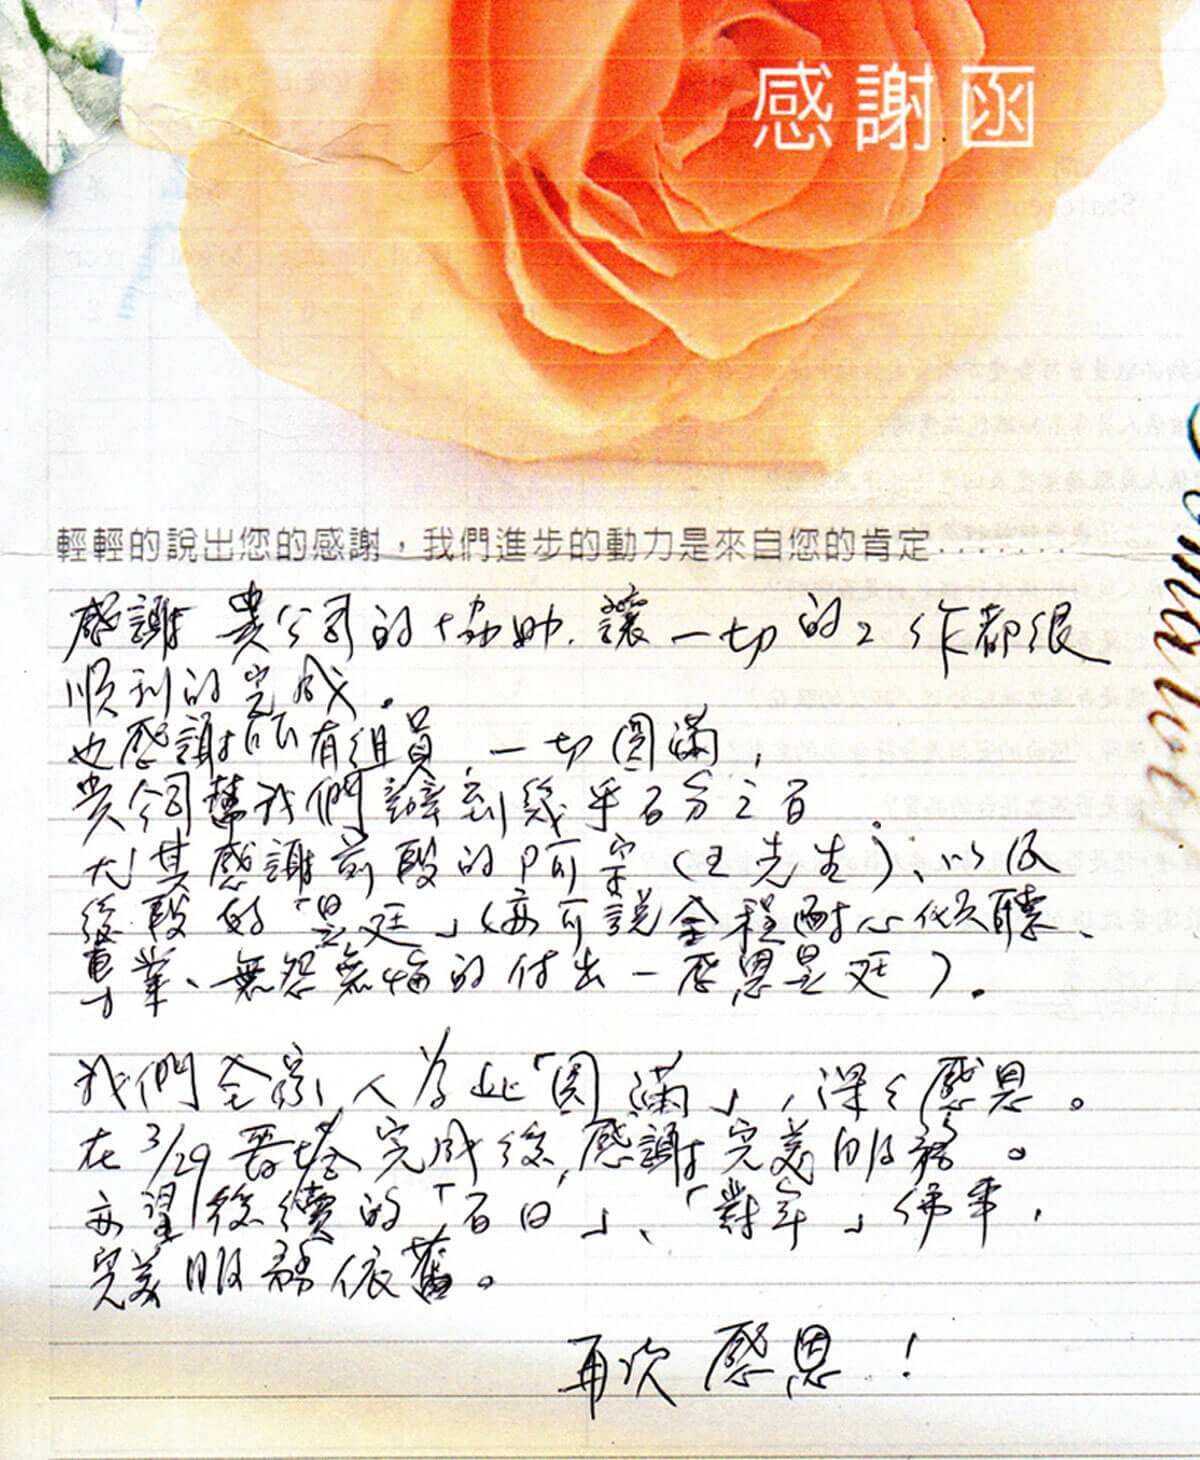 感謝函
輕輕的說出您的感謝，我們進步的動力是來自您的肯定........
感謝 貴公司的協助，讓一切的工作都很
順利的完成。
也感謝所有組員，一切圓滿，
貴公司幫我們辦到幾乎百分之百。
尤其感謝前段的阿宗（王先生）、以及
後段的「昱廷」（亦可說全程耐心傾聽、
專業、無怨無悔的付出－感恩昱廷）。
我們全家人為此「圓滿」，深深感恩。
在3/29晉塔完成後，感謝完美服務。
亦望後續的「百日」、「對年」佛事，
完美服務依舊。
再次感恩！